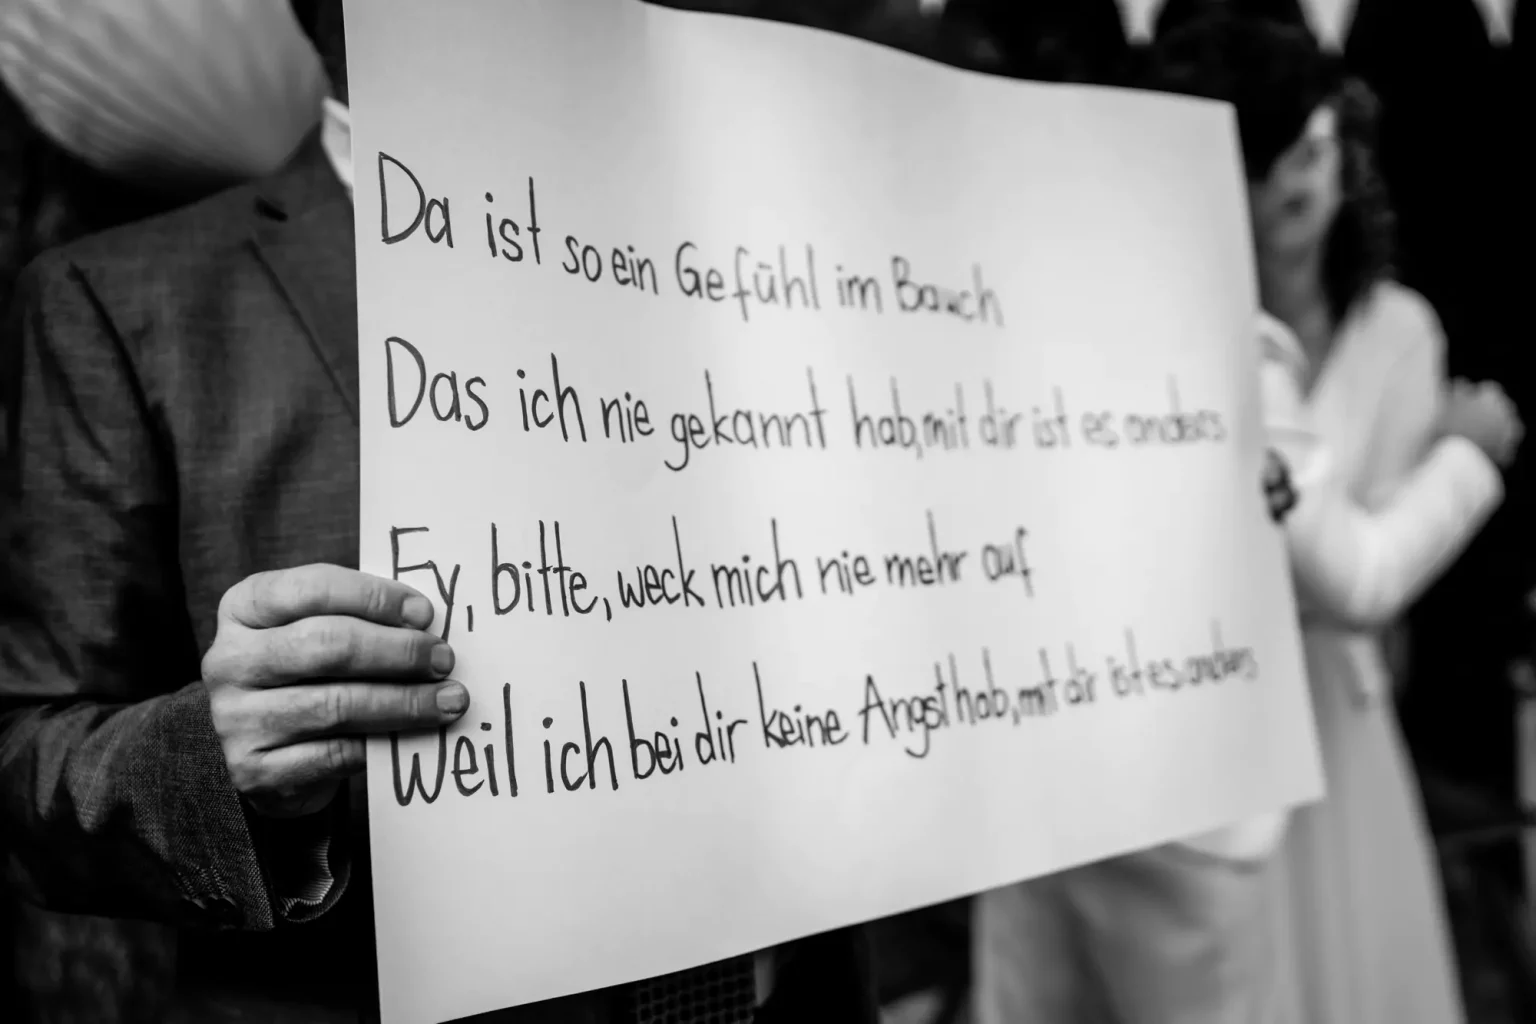 Da ist so ein Gefühl im Bauch
Das ich nie gekannt hab, mit dir ist es anders
Ey, bitte, weck mich nie mehr auf
Weil ich bei dir keine Angst hab, mit dir ist es anders